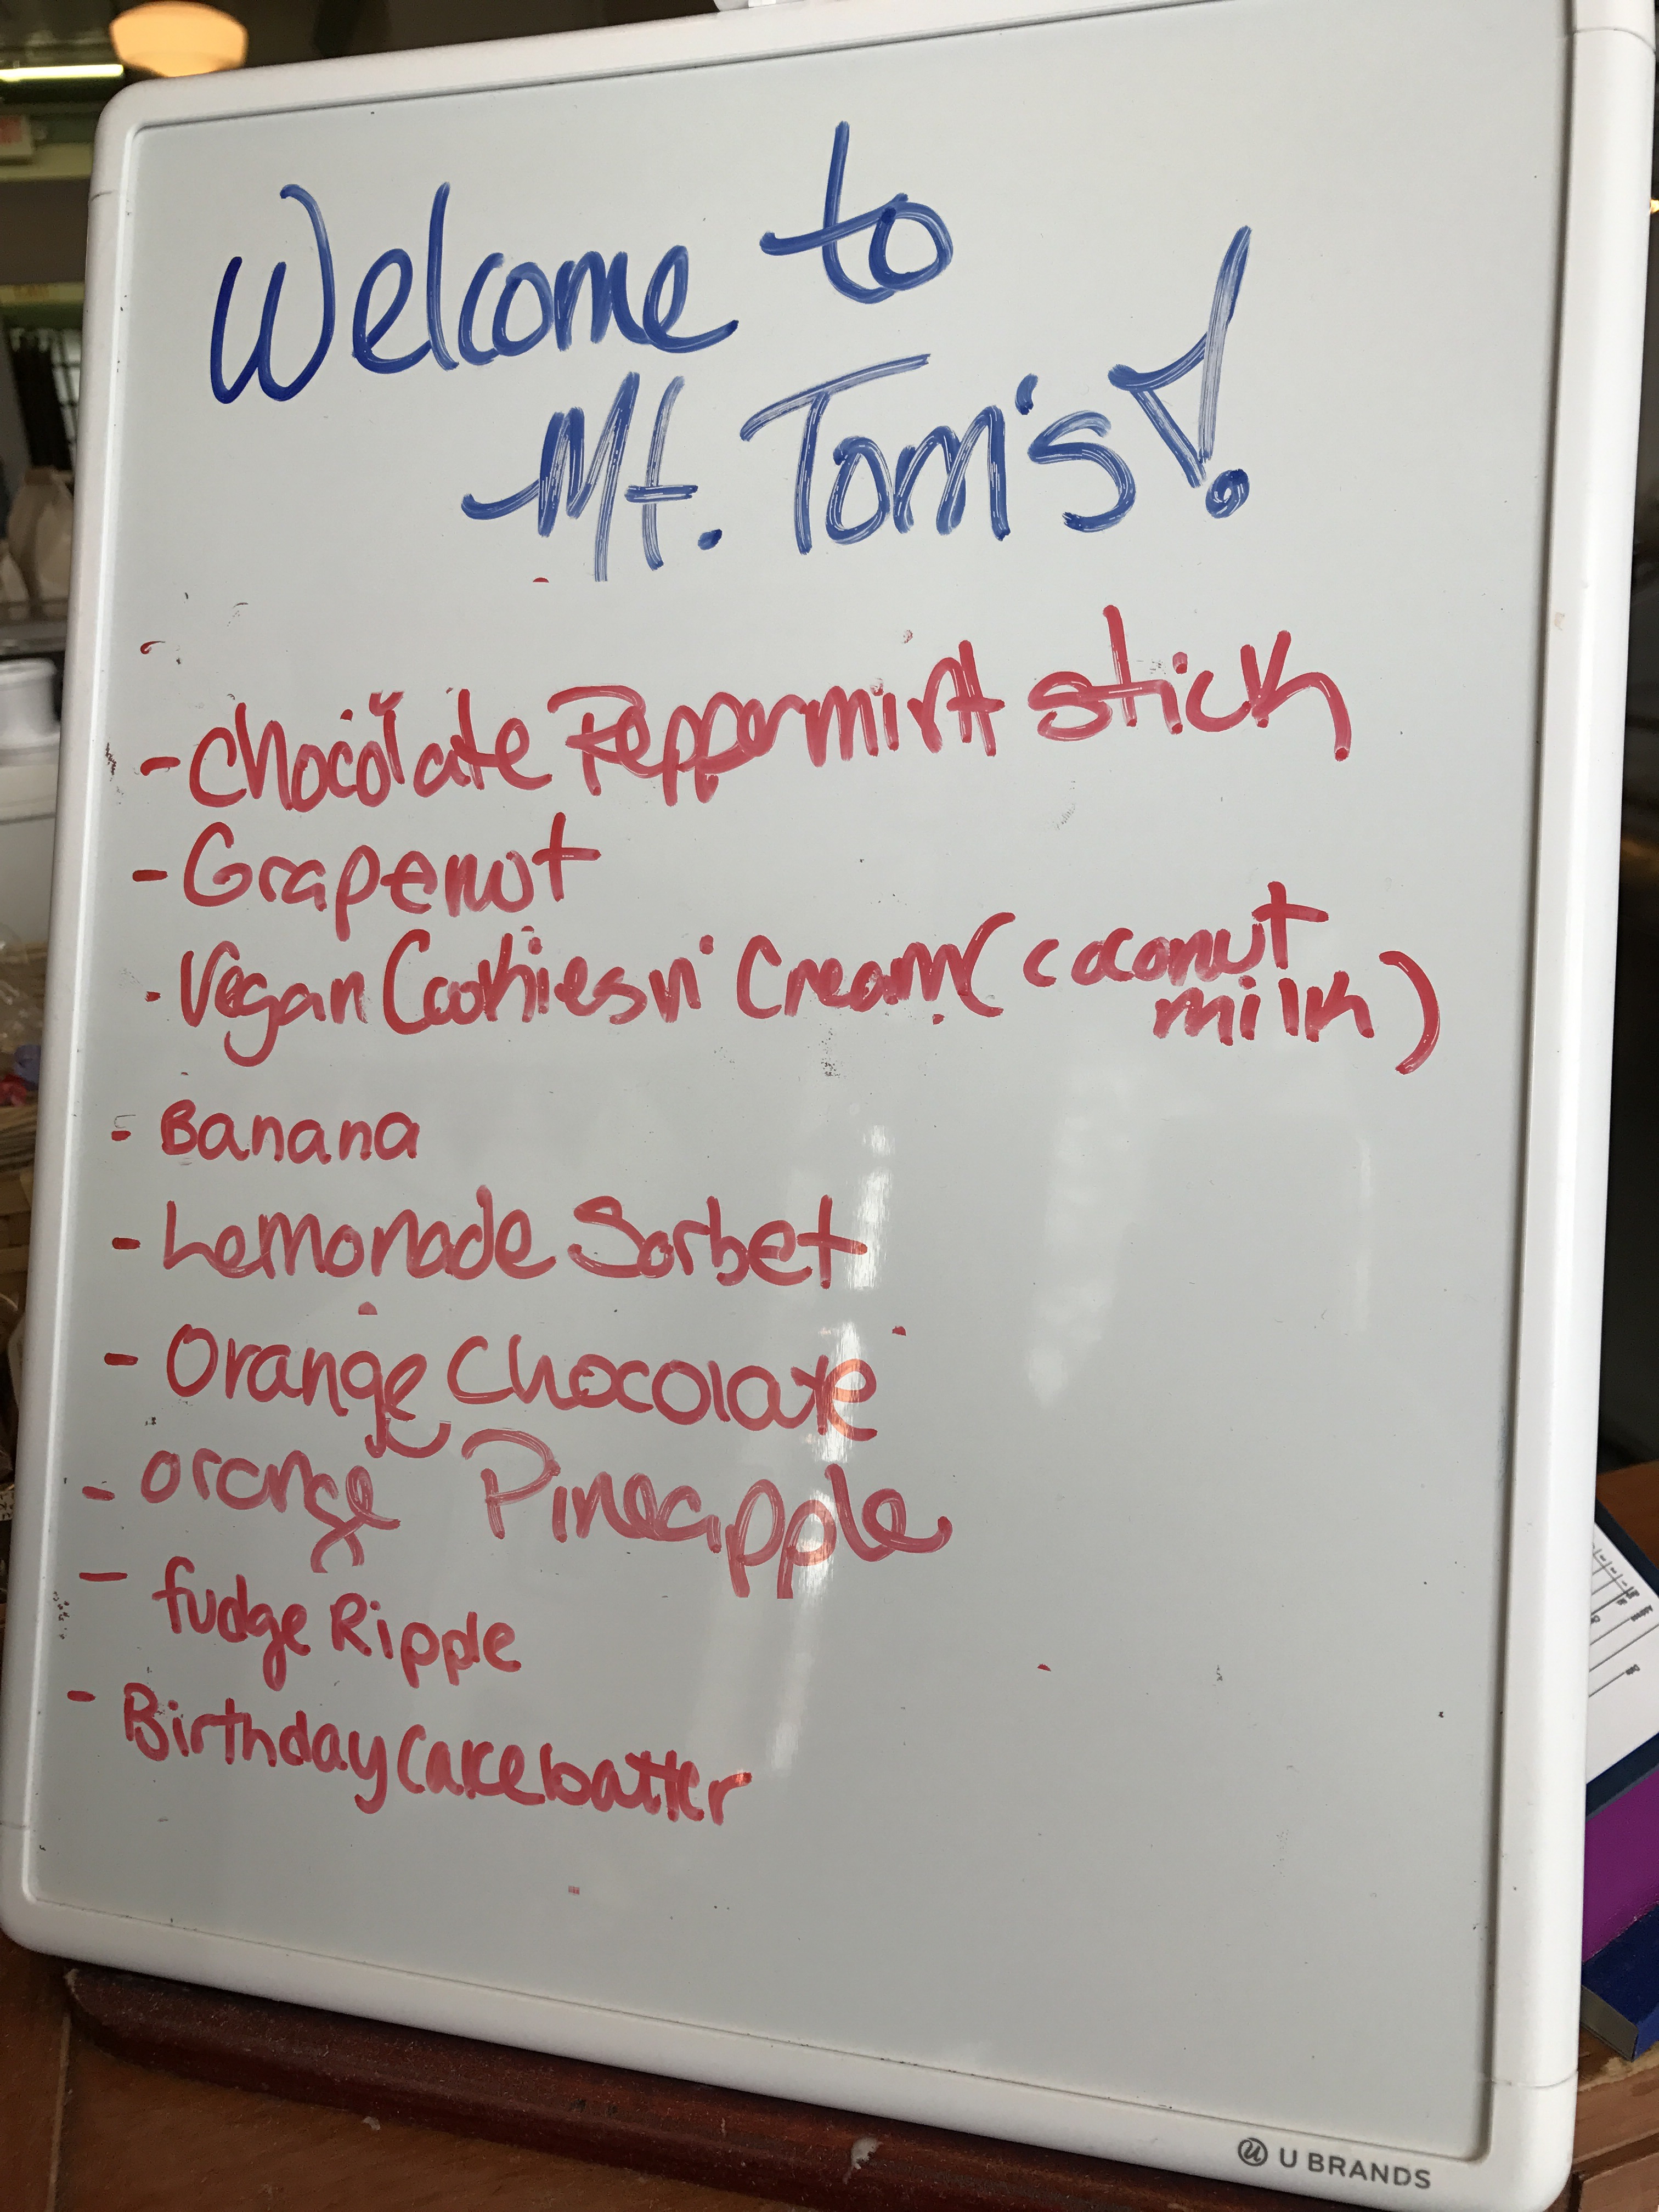 Welcome to
Mt. Tom's!
- Chocolate Peppermint stick
- Grapenut
- Vegan Cookies n' Cream (coconut
milk)
- Banana
- Lemonade Sorbet
- Orange Chocolate
- orange Pineapple
- fudge Ripple
- Birthday Cake batter
U BRANDS